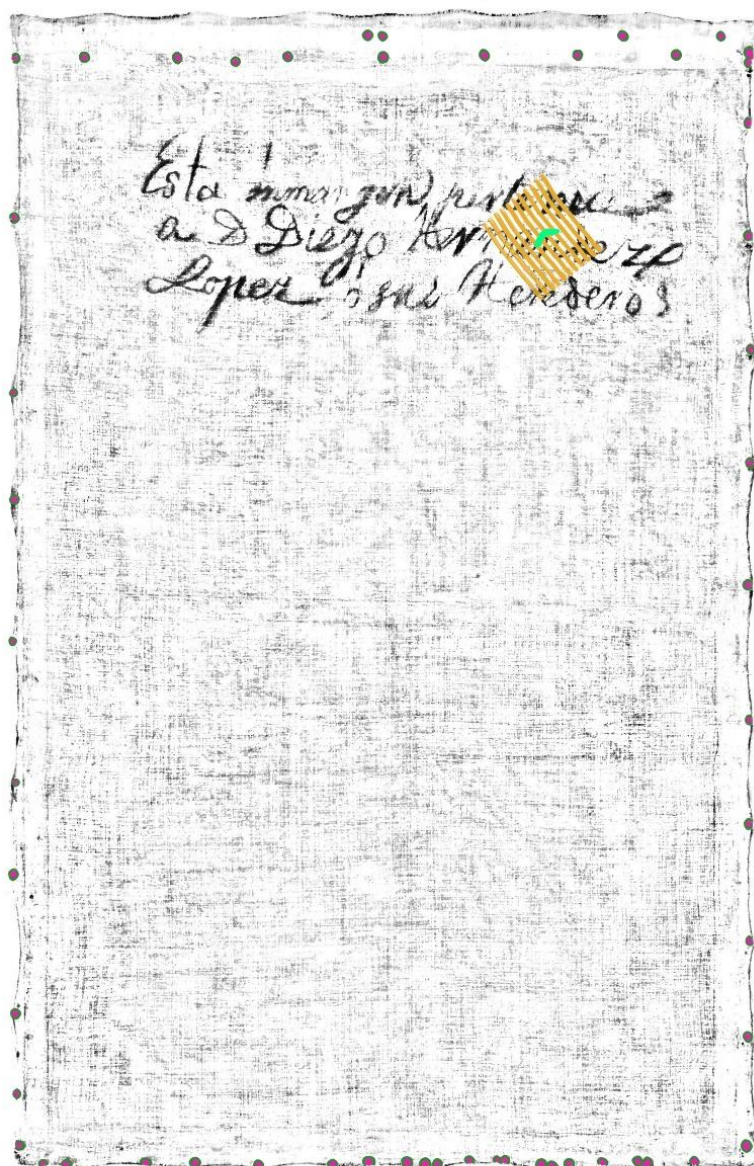 Esta inmargen pertenece
a D Diego Hernandez
Lopez o sus Henderos